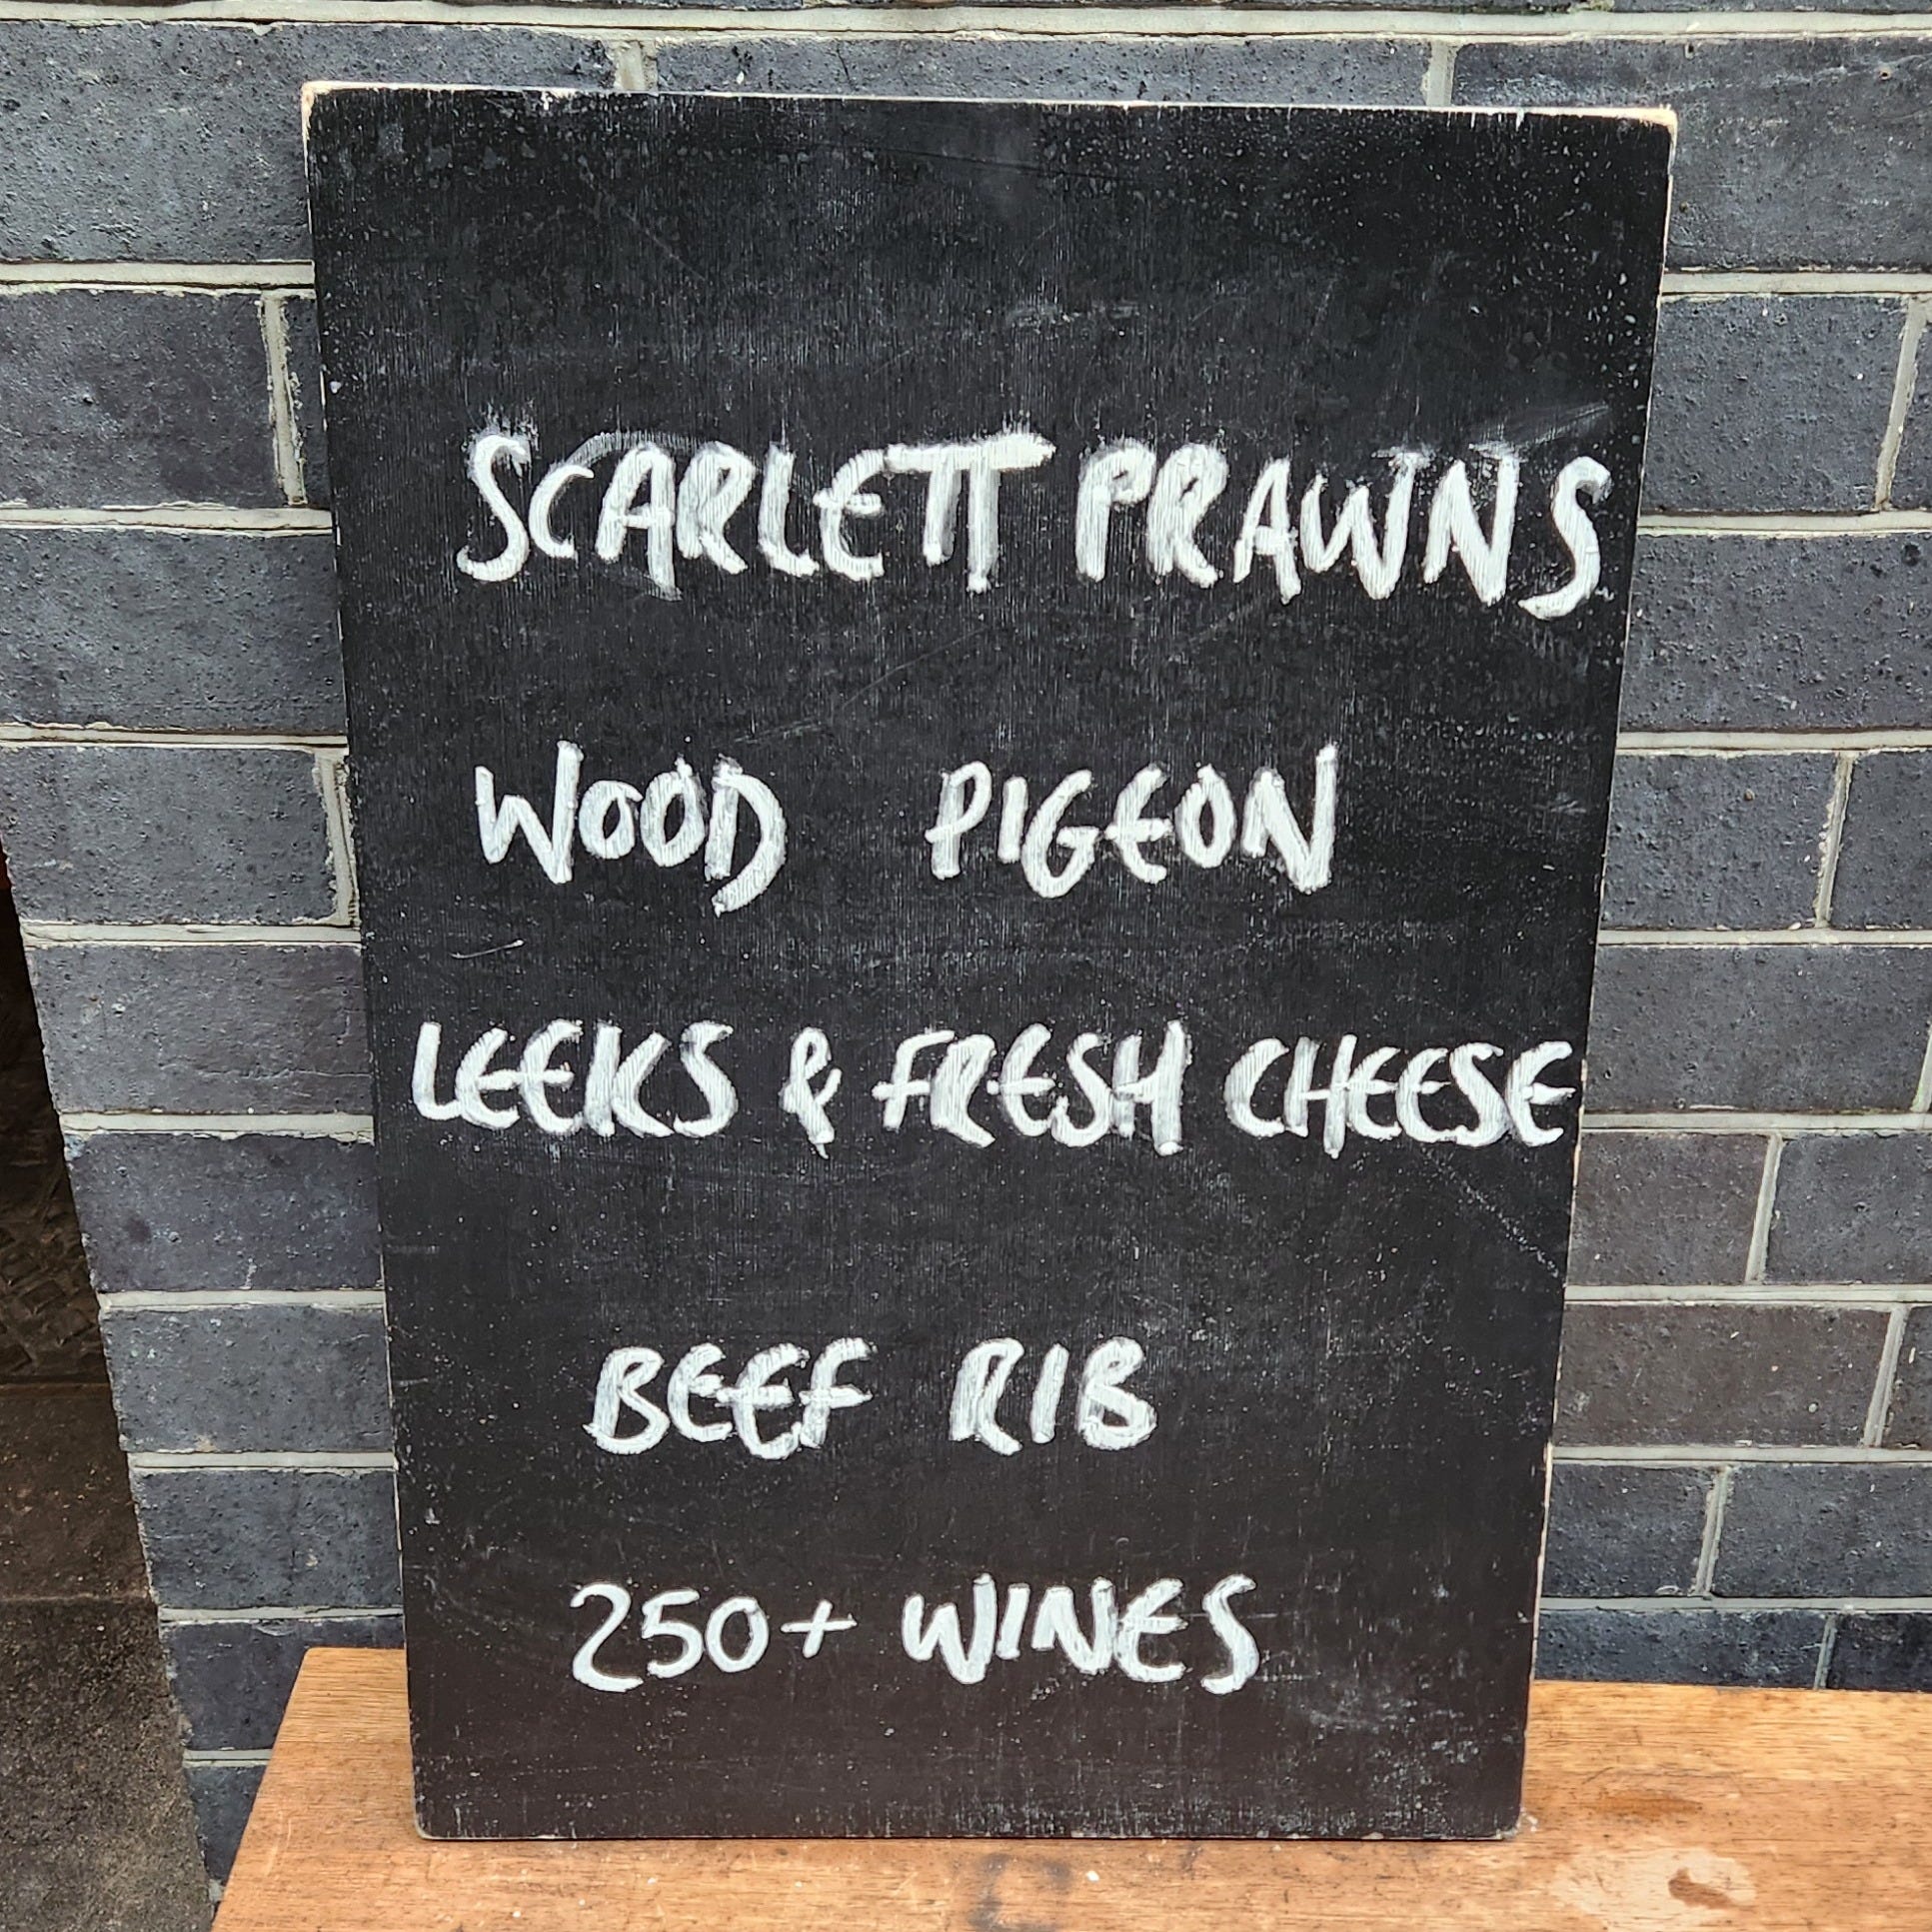 SCARLETT PRAWNS
WOOD PIGEON
LEEKS & FRESH CHEESE
BEEF RIB
250+ WINES